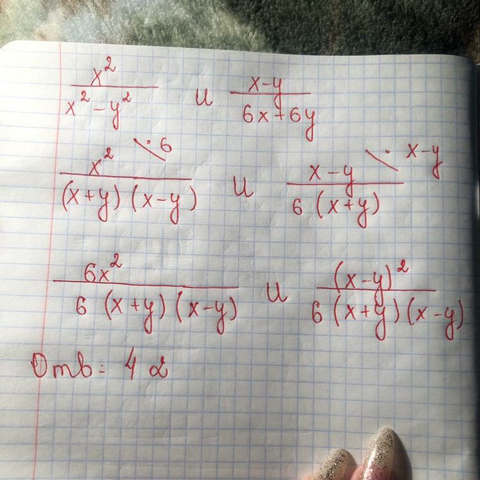 x²/(x² - y²) и (x-y)/(6x+6y)
x²/((x+y)(x-y)) \·6 и (x-y)/(6(x+y)) \·x-y
6x²/(6(x+y)(x-y)) и (x-y)²/(6(x+y)(x-y))
Отв: 4 2